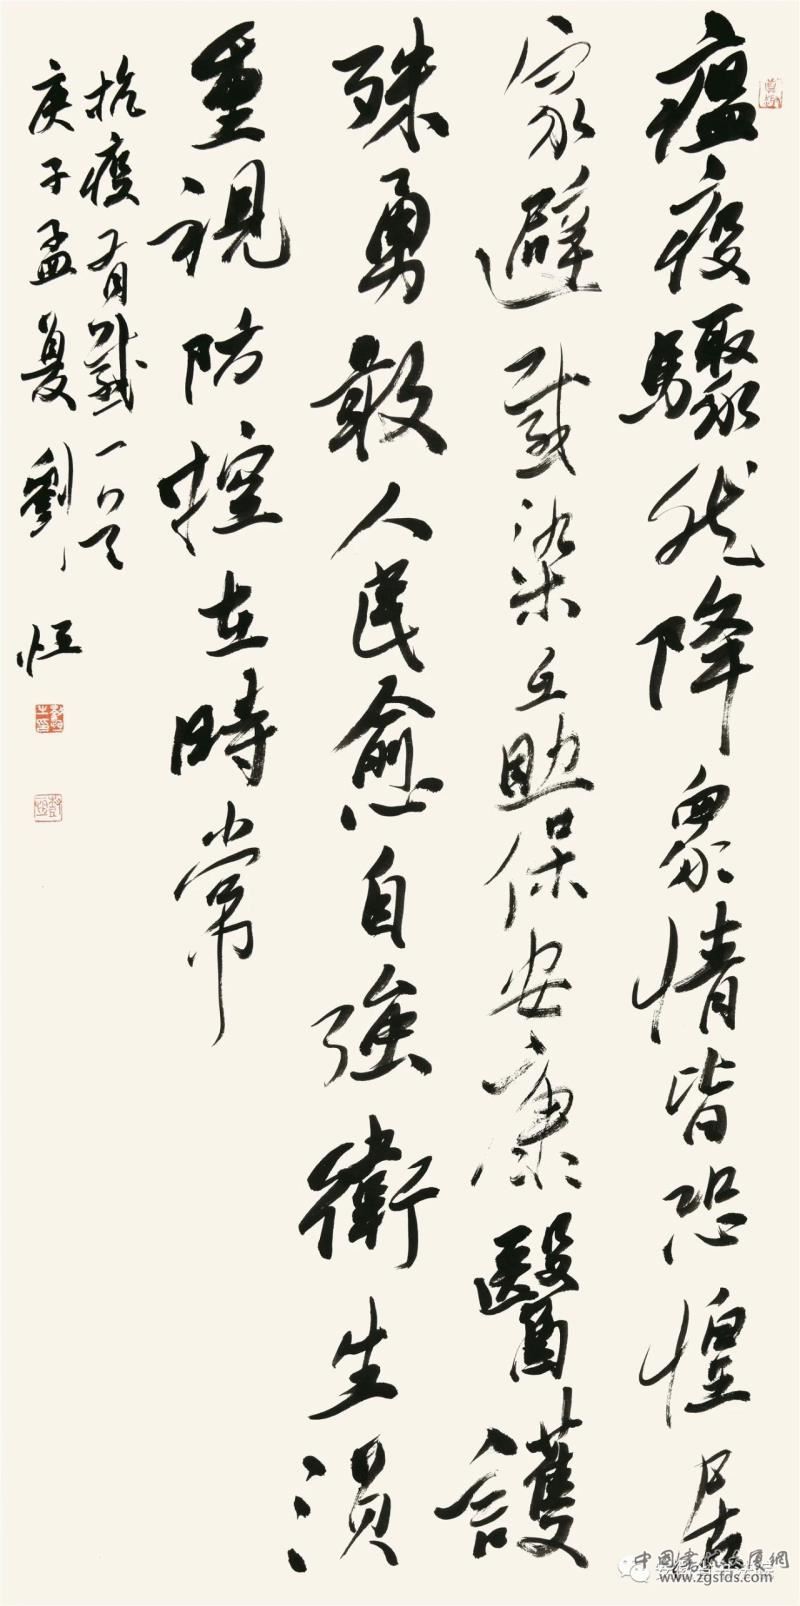 瘟疫驟然降衆情皆恐惶居
家避感染互助保安康醫護
殊勇敢人民愈自強衛生湏
重視防控在時常
抗疫有感一首
庚子孟夏劉恒
中國書法大厦網
www.zgsfds.com